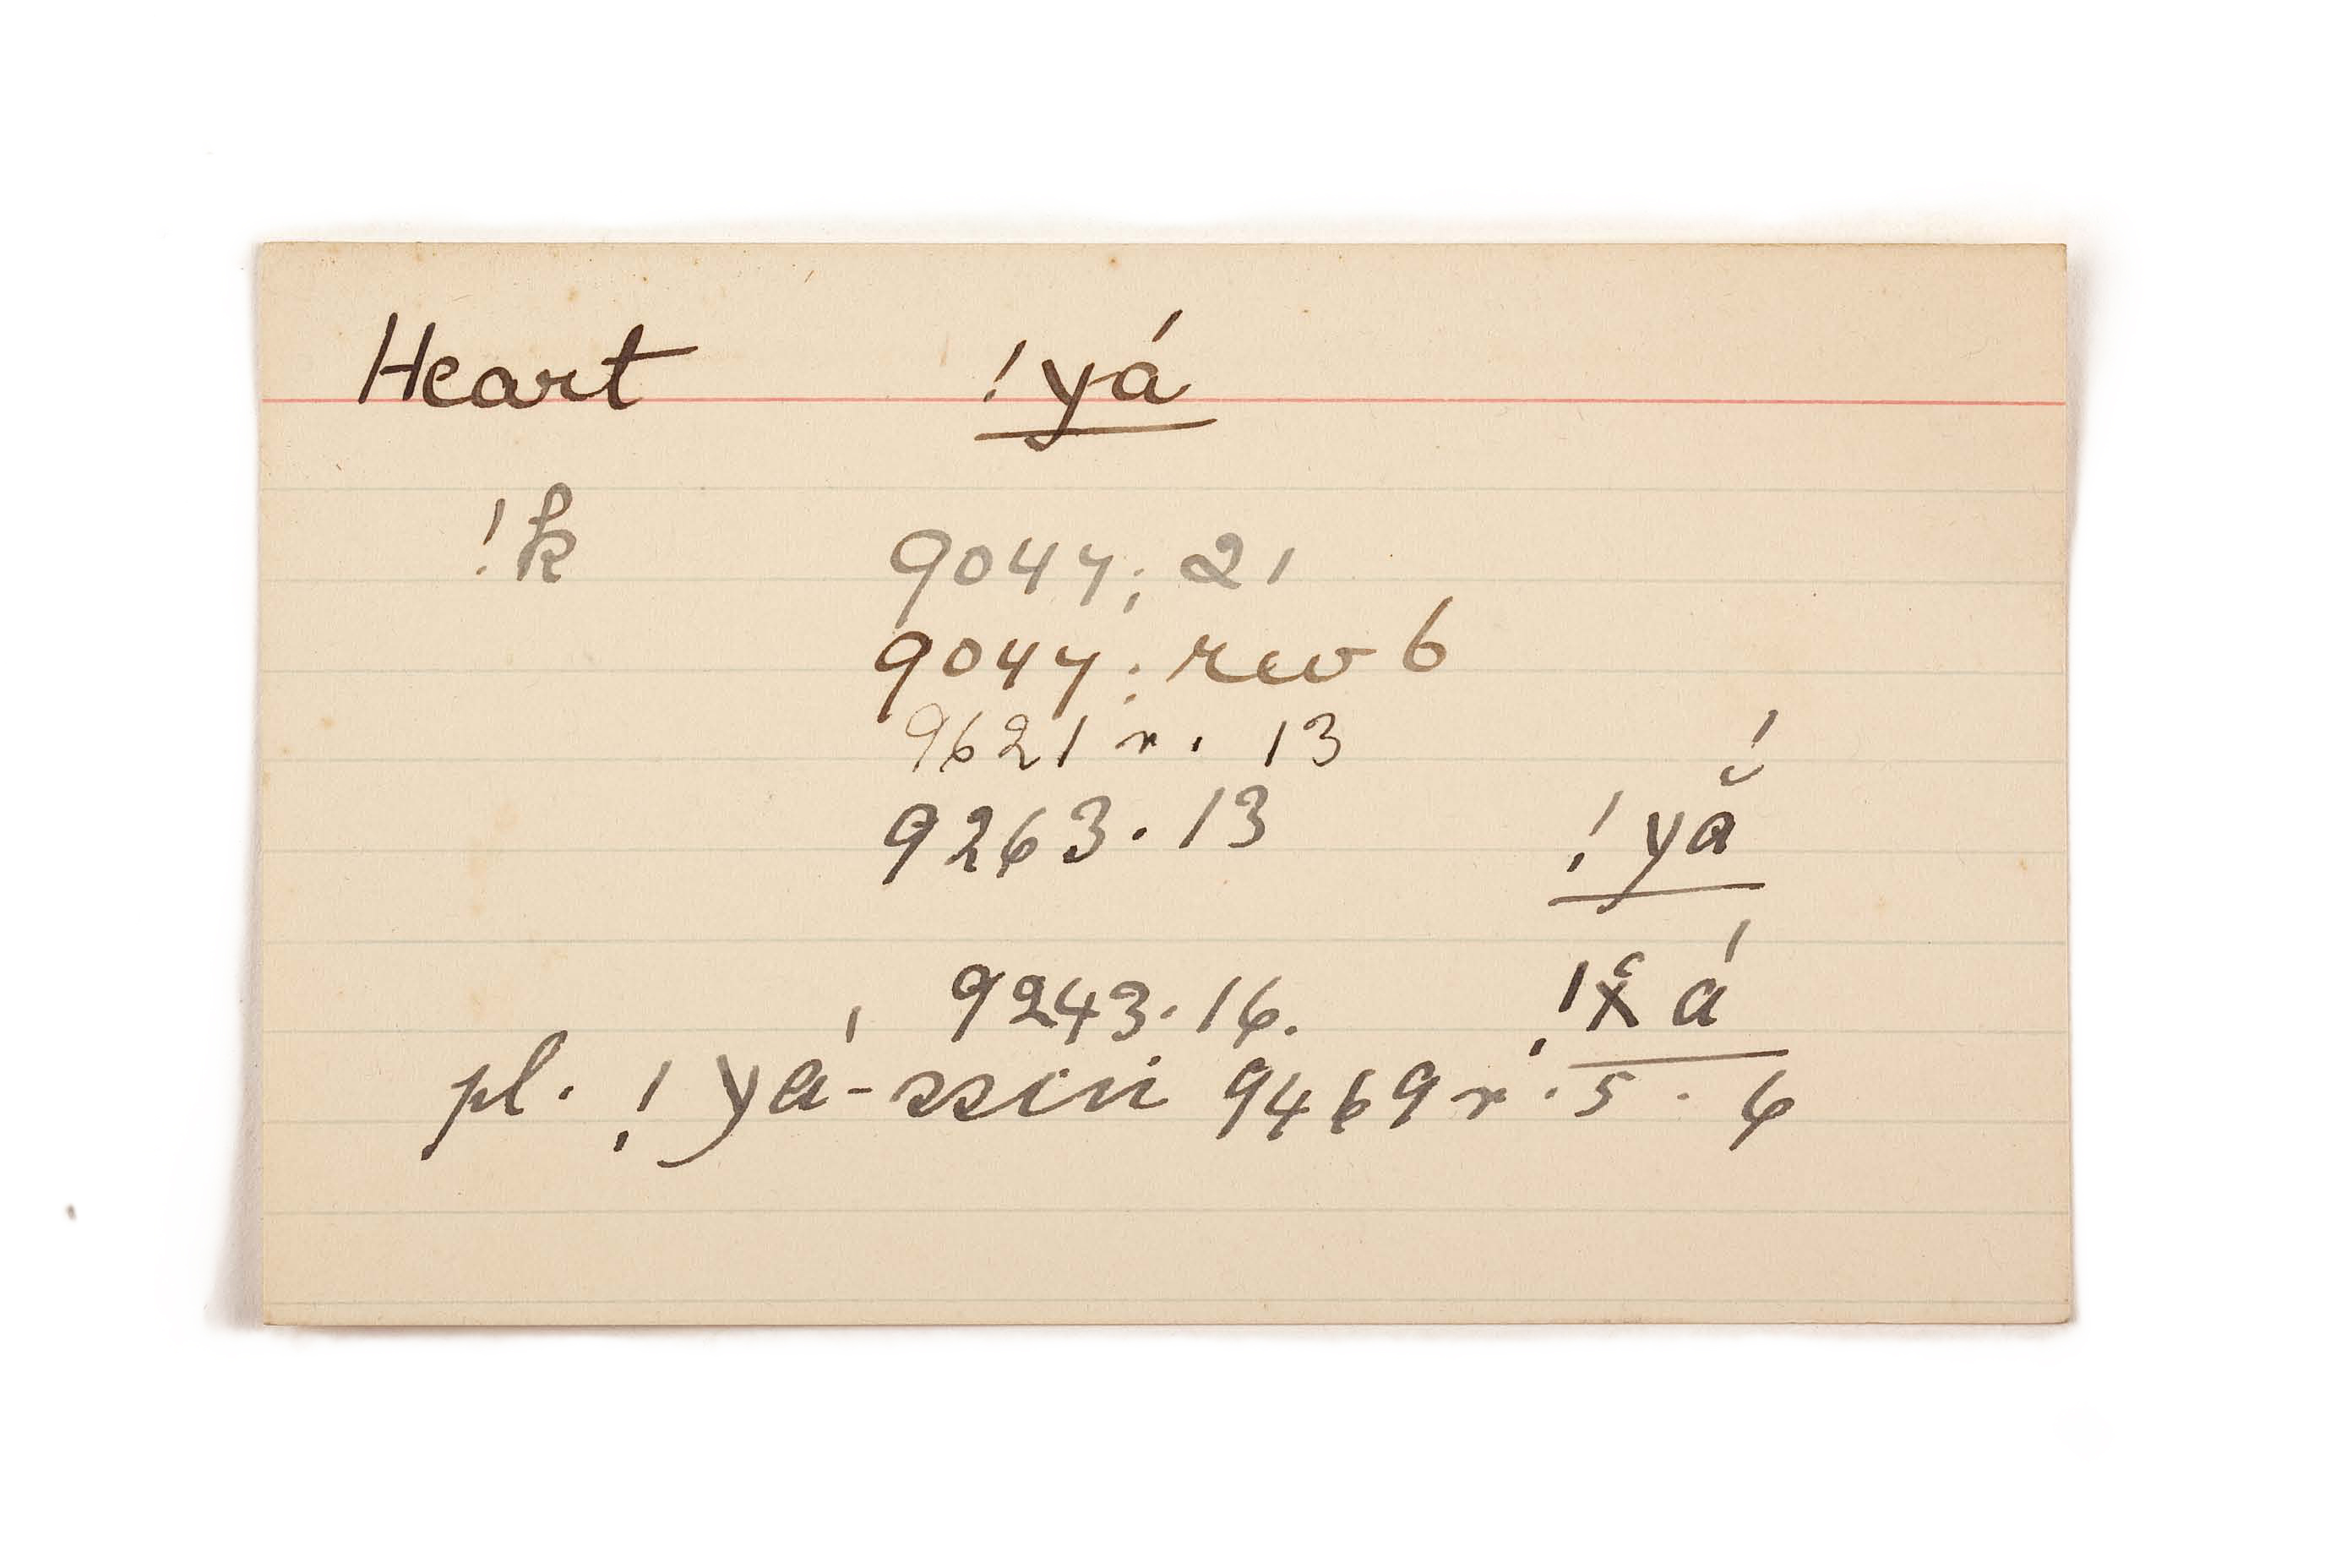 Heart !yá
!k 9047; 21
9047: rev 6
9621 r. 13
9263. 13 !yắ
9243. 16. !χ́á
pl. !yá-ssin 9469 r. 5. 6